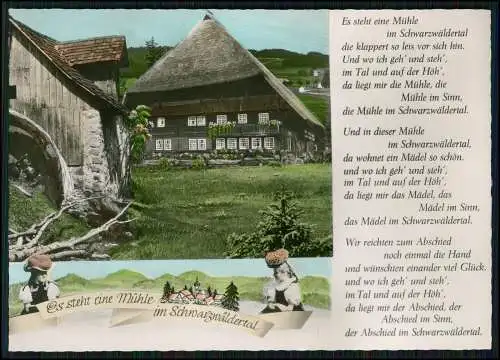 Es steht eine Mühle
im Schwarzwäldertal
die klappert so leis vor sich hin.
Und wo ich geh' und steh',
im Tal und auf der Höh',
da liegt mir die Mühle, die
Mühle im Sinn,
die Mühle im Schwarzwäldertal.
Und in dieser Mühle
im Schwarzwäldertal,
da wohnet ein Mädel so schön.
und wo ich geh' und steh',
im Tal und auf der Höh',
da liegt mir das Mädel, das
Mädel im Sinn,
das Mädel im Schwarzwäldertal.
Wir reichten zum Abschied
noch einmal die Hand
und wünschten einander viel Glück.
und wo ich geh' und steh',
im Tal und auf der Höh',
da liegt mir der Abschied, der
Abschied im Sinn,
der Abschied im Schwarzwäldertal.
Es steht eine Mühle
im Schwarzwäldertal